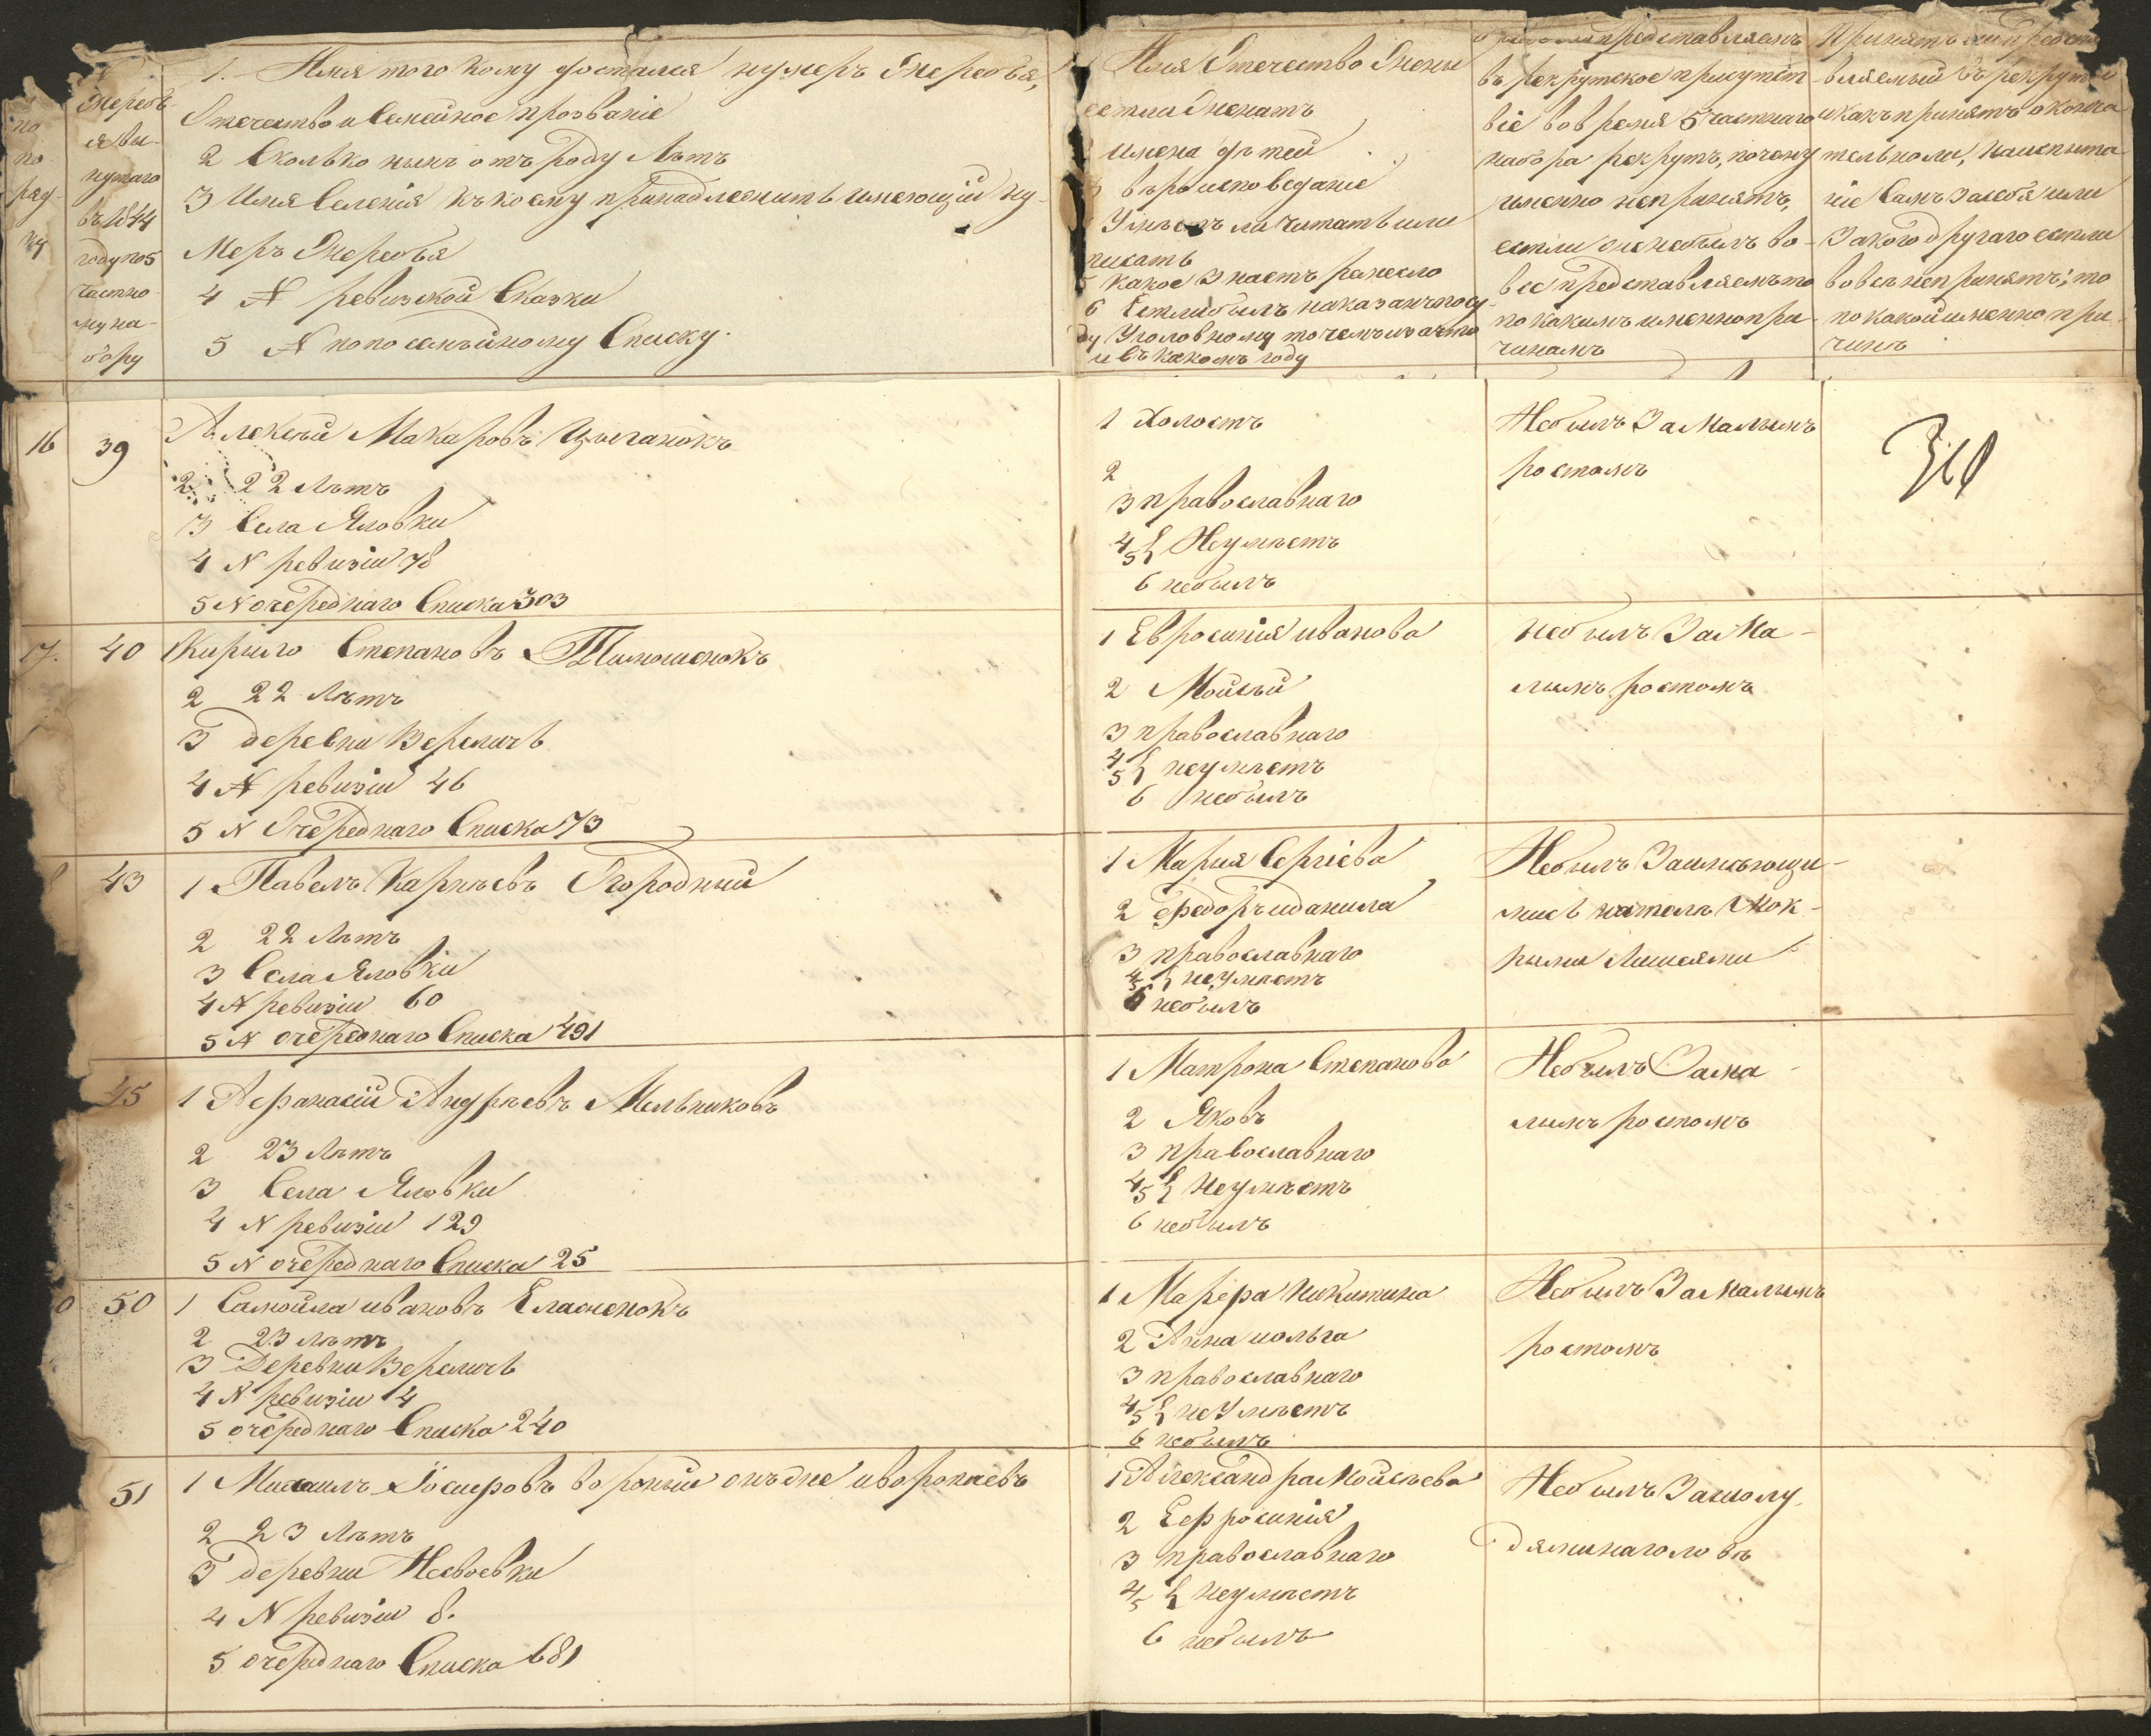 по
по
ряд
ку
Жеребь
я вы
нутаго
въ 1844
году по 5
частно
му на-
бору
1. Имя того кому достался нумеръ Жеребья,
Отечество и Семейное прозваніе
2 Сколько нынѣ отъ роду Лѣтъ
3 Имя Селенія къ коему принадлежитъ имеющій ну-
меръ Жеребья
4 N ревизской Сказки
5 N по посемейному Списку.
Имя Отечество Жены
естли Женатъ
имена детей
вѣроисповеданіе
Умѣетъ ли Читать или
писать
Какое Знаетъ ремесло
6 Естли былъ наказанъ по су
ду Уголовному то чемъ за что
и въ какомъ году
представляемъ
въ рекрутское присутст
віе во время 5 частнаго
набора рекрутъ, почему
именно непринятъ,
естли же небылъ во-
все представляемъ то
по какимъ именно при-
чинамъ
Принятъ ли предста
вляемый въ рекруты
и какъ принятъ оконча
тельно ли, на испыта
ніе Самъ За себя или
За кого другаго естли
вовсе непринятъ; то
по какой именно при-
чинѣ
16
39
Алексѣй Макаровъ Цыганокъ
2 22 Лѣтъ
3 Села Яловки
4 N ревизіи 78
5 N очереднаго Списка 303
1 Холостъ
2
3 православнаго
4 5 } Неумѣетъ
6 небылъ
Небылъ За Малымъ
ростомъ
17.
40
Кирило Степановъ Тимошенокъ
2 22 Лѣтъ
3 деревни Веремичь
4 N ревизіи 46
5 N Очереднаго Списка 73
1 Евросинія иванова
2 Мойсѣй
3 православнаго
4 5 } неумѣетъ
6 небылъ
небылъ За Ма-
лымъ ростомъ
43
1 Павелъ Карпѣевъ Огородный
2 22 Лѣтъ
3 Села Яловки
4 N ревизіи 60
5 N очереднаго Списка 491
1 Мария Сергіева
2 Федоръ и данила
3 православнаго
4 5 } неумѣетъ
6 небылъ
Небылъ За имѣющи-
мись на телѣ Мок-
рыми Лишаями
45
1 Афанасій Андрѣевъ Мельниковъ
2 23 Лѣтъ
3 Села Яловки
4 N ревизіи 129
5 N очереднаго Списка 25
1 Матрона Степанова
2 Яковъ
3 православнаго
4 5 } Неумѣетъ
6 небылъ
Небылъ За ма-
лымъ ростомъ
0
50
1 Самойла ивановъ
2 23 лѣтъ
3 Деревни Веремичь
4 N ревизіи 4
5 очереднаго Списка 240
1 Марфа Никитина
2 Анна и ольга
3 православнаго
4 5 } неУмѣетъ
6 небылъ
Небылъ За малымъ
ростомъ
51
1 Михаилъ Іосифовъ вороный онъ же и воропаевъ
2 23 Лѣтъ
3 деревни Невоевки
4 N ревизіи 8.
5 очереднаго Списка 681
1 Александра Мойсѣева
2 Ефросинія
3 православнаго
4 5 } неумѣетъ
6 небылъ
Небылъ За шолу
дями на головѣ